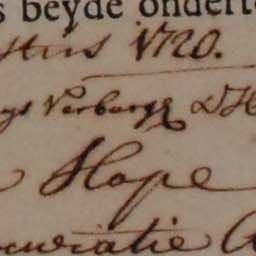 s beyde onderte
stus 1720.
gs Verbergh & H
Hope
curatie